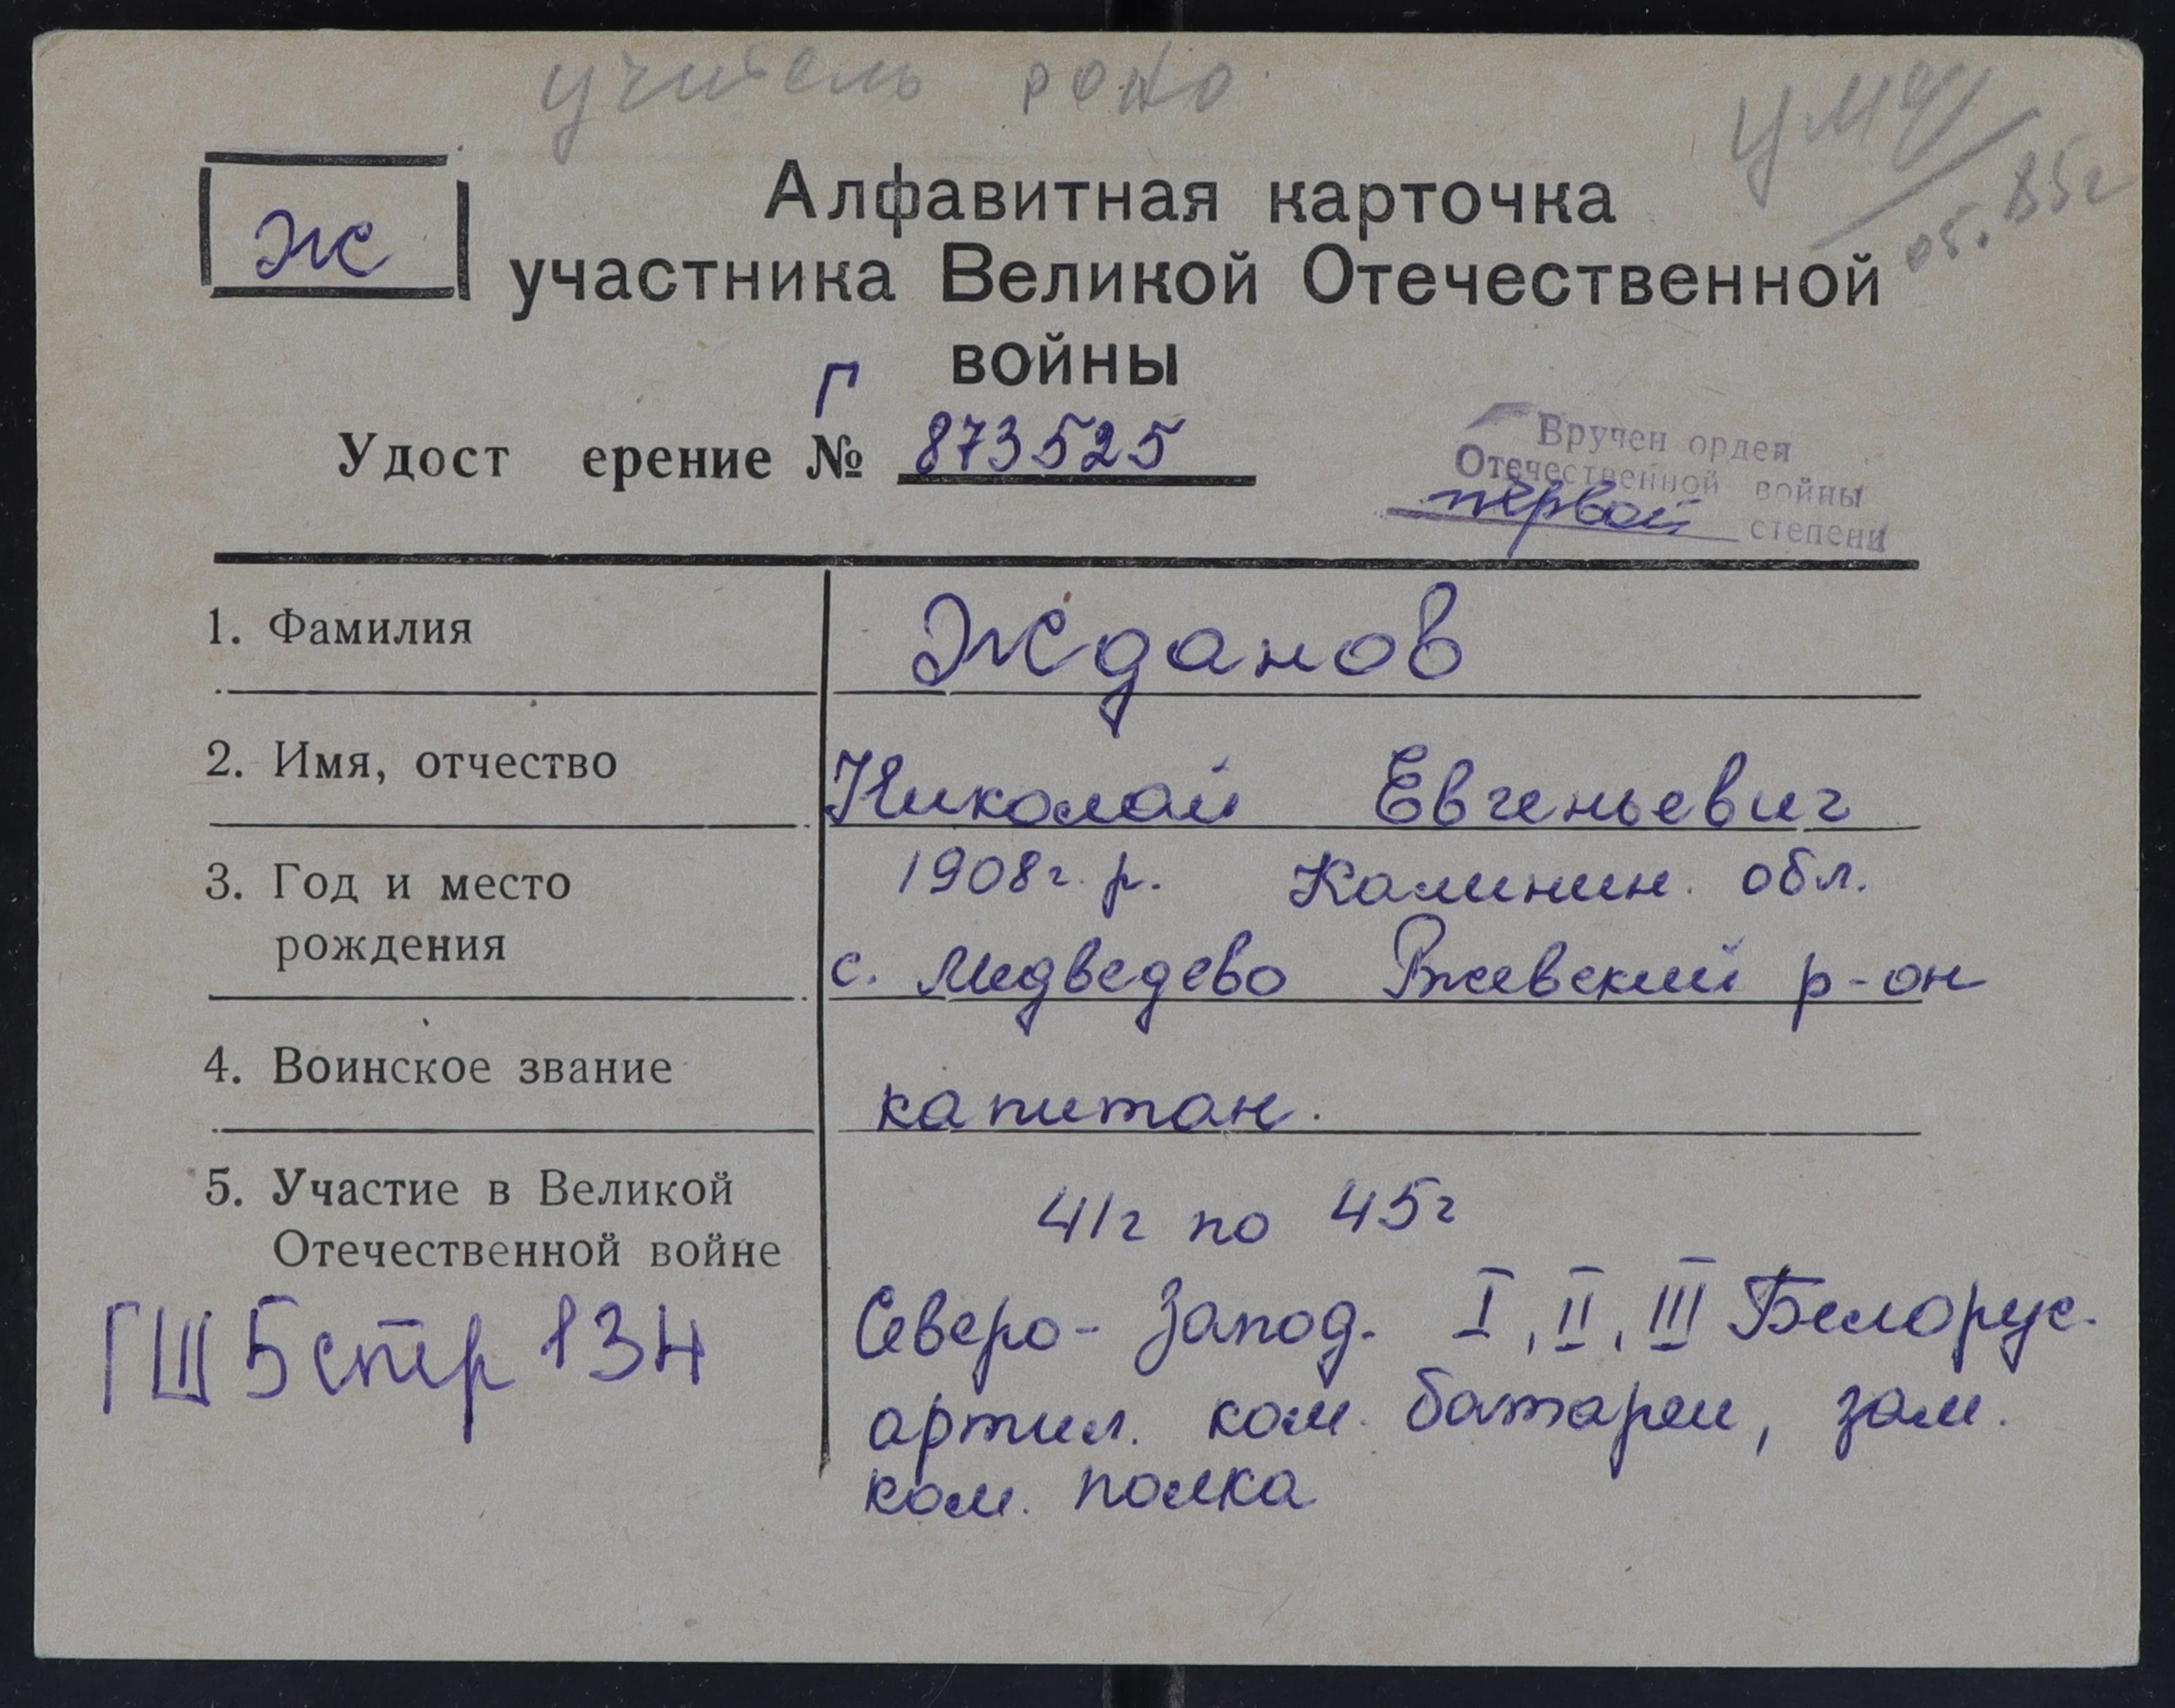 учитель роно
умер
05.85г
Ж
Алфавитная карточка
участника Великой Отечественной
войны
Г
Удост ерение № 873525
Вручен орден
Отечественной войны
первой степени
1. Фамилия
Жданов
2. Имя, отчество
Николай Евгеньевич
3. Год и место
рождения
1908г. р. Калинин. обл.
с. Медведево Ржевский р-он
4. Воинское звание
капитан.
5. Участие в Великой
Отечественной войне
41г по 45г
Северо-Запад. I, II, III Белорус.
артил. ком. батареи, зам.
ком. полка
ГШ 5 стр 134